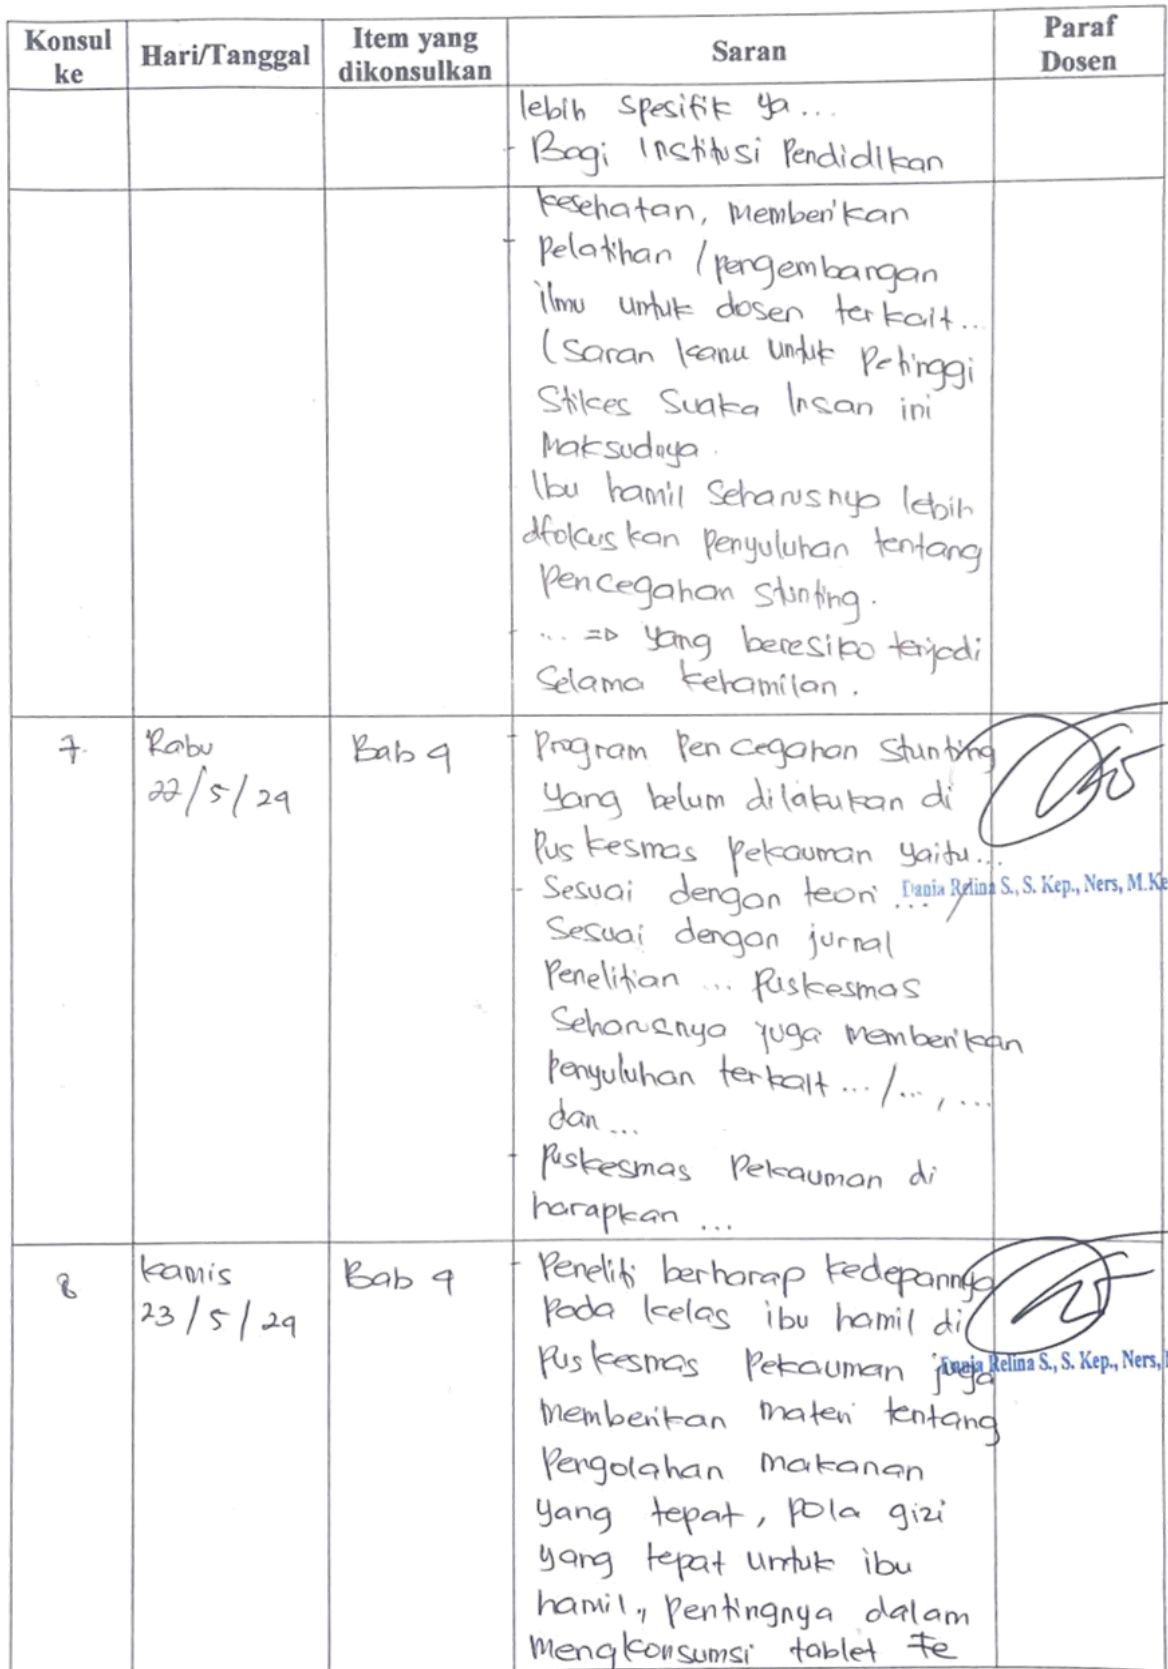 Konsul ke
Hari/Tanggal
Item yang dikonsulkan
Saran
Paraf Dosen
lebih spesifik ya...
- Bagi Institusi Pendidikan
kesehatan, memberikan
- pelatihan / pengembangan
ilmu untuk dosen terkait...
(saran kamu untuk Petinggi
Stikes Suaka Insan ini
Maksudnya.
Ibu hamil seharusnya lebih
difokuskan penyuluhan tentang
pencegahan stunting.
- ... => yang beresiko terjadi
selama kehamilan.
7.
Rabu
22/5/24
Bab 4
- Program Pencegahan Stunting
yang belum dilakukan di
Puskesmas Pekauman yaitu...
- Sesuai dengan teori ... /
Sesuai dengan jurnal
Penelitian ... Puskesmas
Seharusnya juga memberikan
penyuluhan terkait ... / ... , ...
dan ...
- Puskesmas Pekauman di
harapkan ...
Dania Relina S., S. Kep., Ners, M.Ke
8
kamis
23/5/24
Bab 4
- Peneliti berharap kedepannya
pada kelas ibu hamil di
puskesmas Pekauman juga
memberikan materi tentang
Pengolahan makanan
yang tepat, pola gizi
yang tepat untuk ibu
hamil, pentingnya dalam
mengkonsumsi tablet Fe
Dania Relina S., S. Kep., Ners,